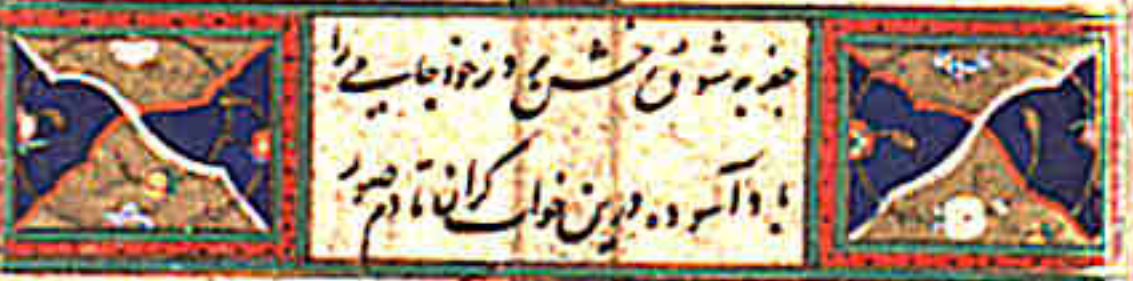 جذبه شوق رخش برد ز خود جامی را
باد آسوده درین خواب کران تا دم صور